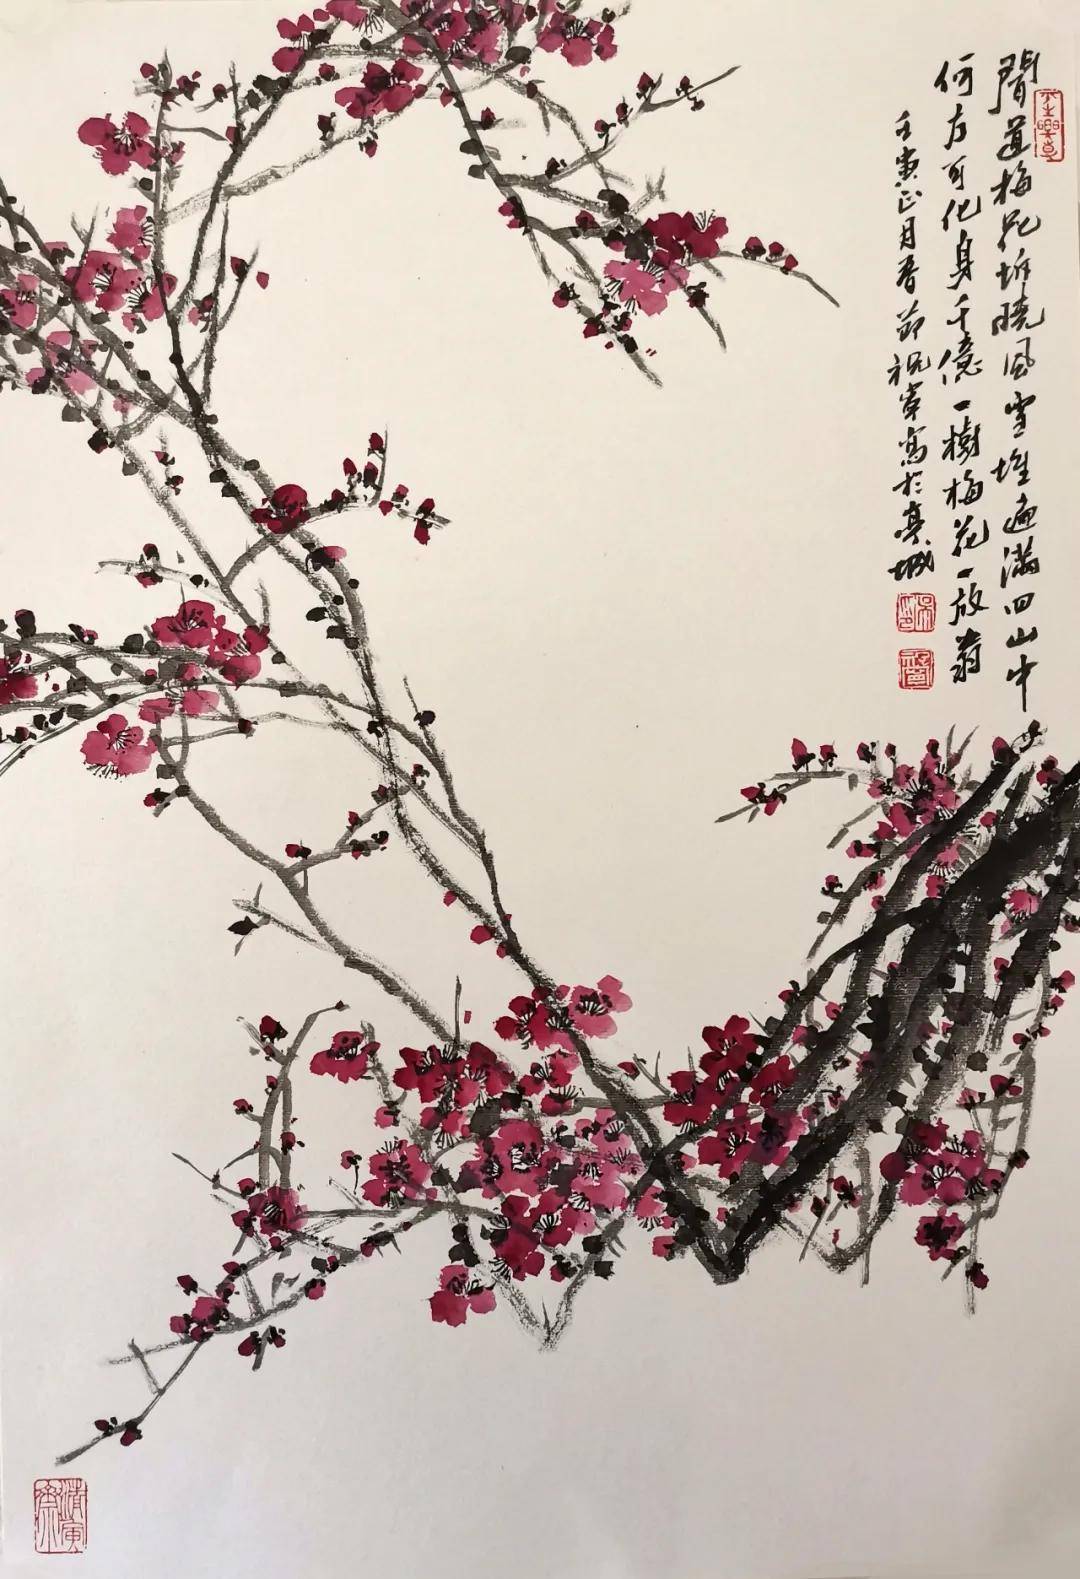 聞道梅花坼曉風雪堆遍滿四山中
何方可化身千億一樹梅花一放翁
壬寅正月春節祝寧寫於亳城